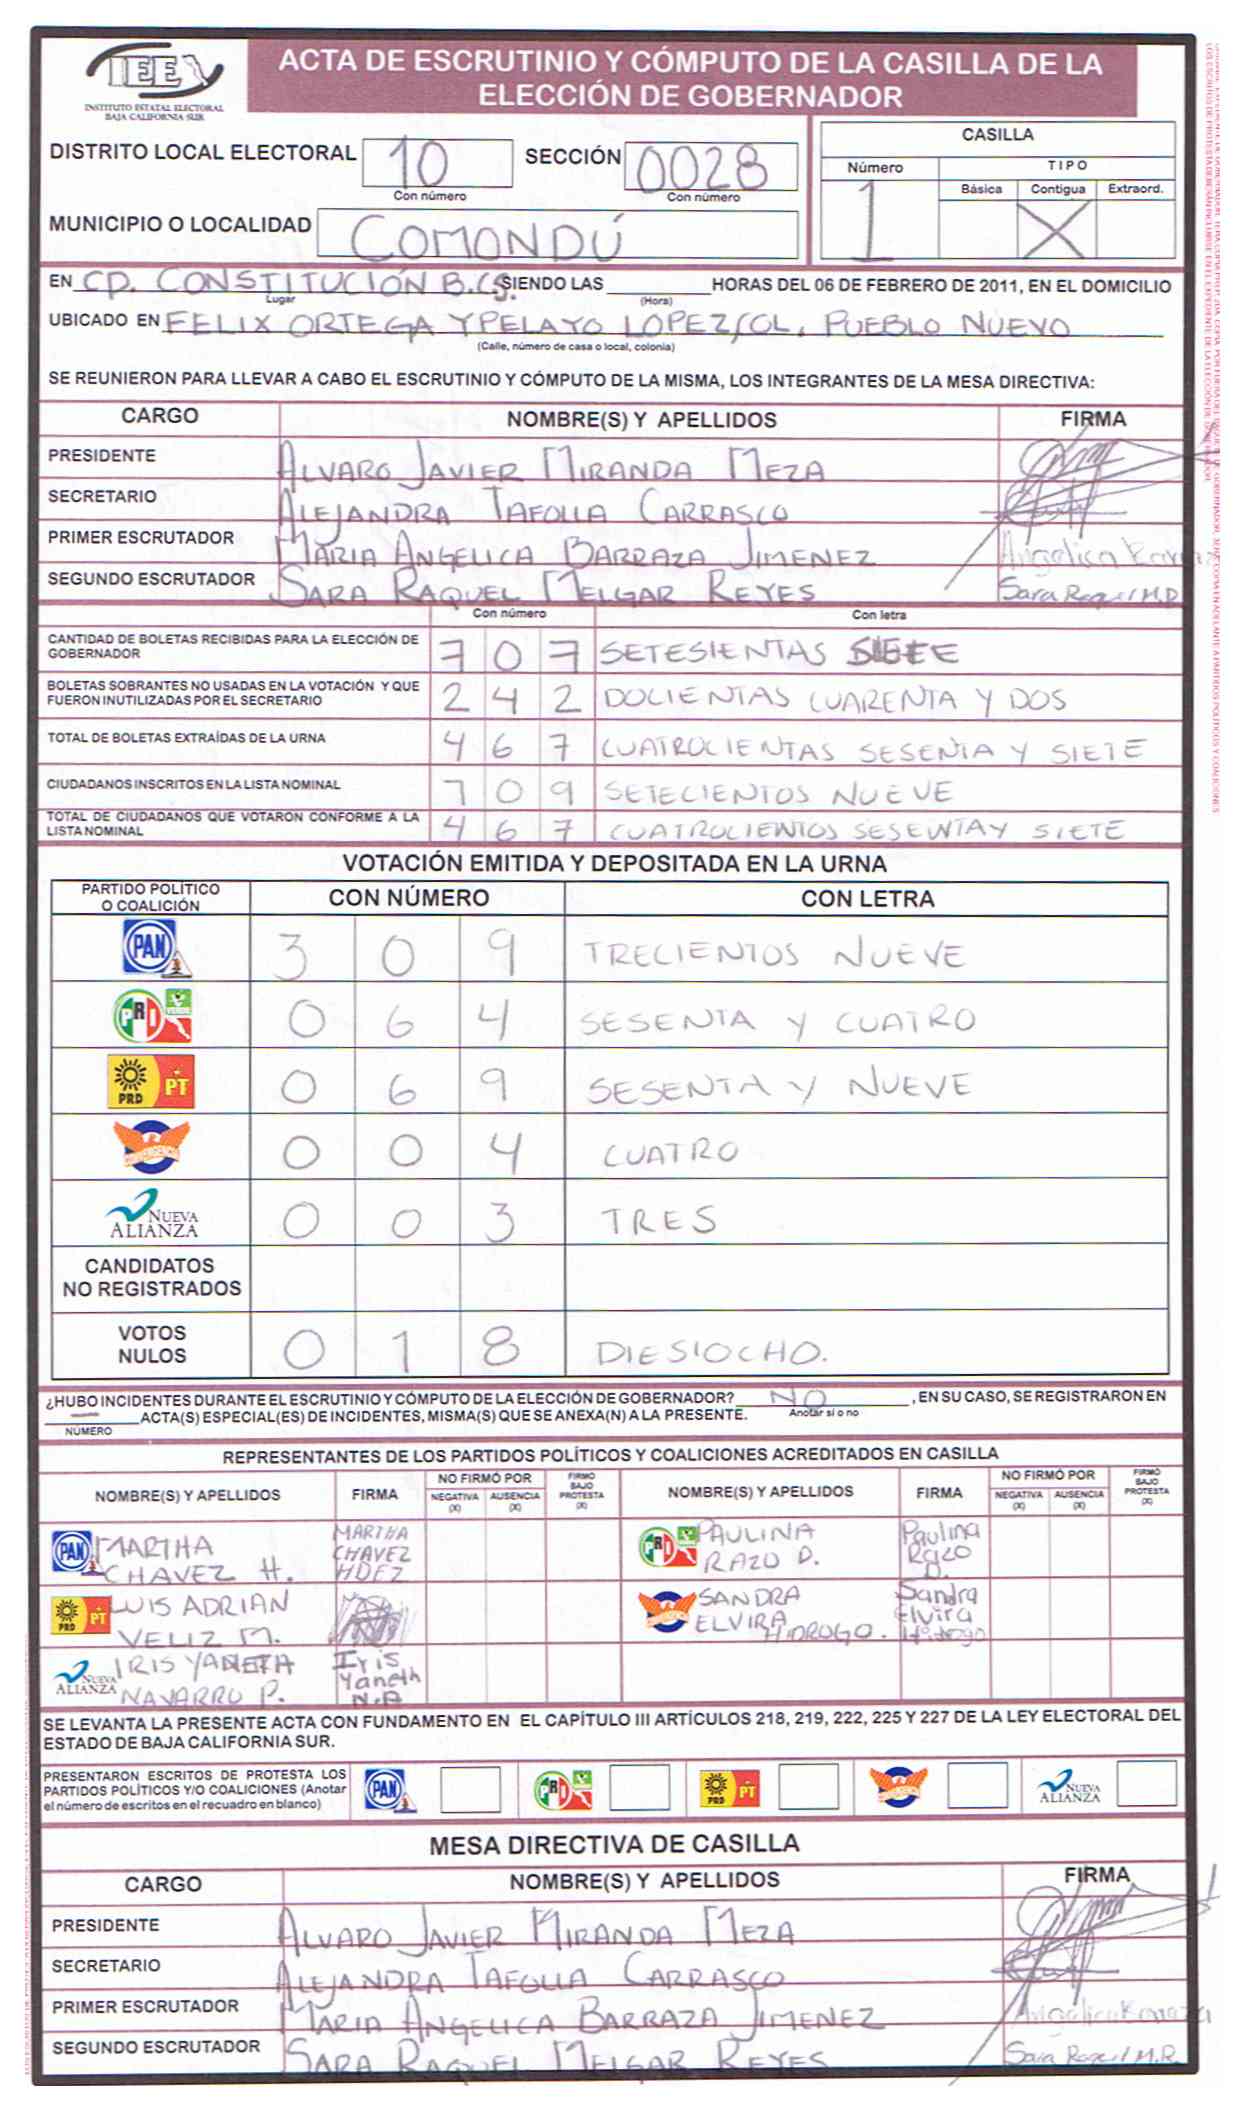 IEE
INSTITUTO ESTATAL ELECTORAL
BAJA CALIFORNIA SUR
ACTA DE ESCRUTINIO Y CÓMPUTO DE LA CASILLA DE LA
ELECCIÓN DE GOBERNADOR
DISTRITO LOCAL ELECTORAL 10 SECCIÓN 0028
Con número Con número
MUNICIPIO O LOCALIDAD COMONDÚ
CASILLA
Número TIPO
Básica Contigua Extraord.
1 X
EN CD. CONSTITUCIÓN B.C.S. SIENDO LAS HORAS DEL 06 DE FEBRERO DE 2011, EN EL DOMICILIO
Lugar (Hora)
UBICADO EN FELIX ORTEGA Y PELAYO LOPEZ, COL. PUEBLO NUEVO
(Calle, número de casa o local, colonia)
SE REUNIERON PARA LLEVAR A CABO EL ESCRUTINIO Y CÓMPUTO DE LA MISMA, LOS INTEGRANTES DE LA MESA DIRECTIVA:
CARGO NOMBRE(S) Y APELLIDOS FIRMA
PRESIDENTE ALVARO JAVIER MIRANDA MEZA
SECRETARIO ALEJANDRA TAFOLLA CARRASCO
PRIMER ESCRUTADOR MARIA ANGELICA BARRAZA JIMENEZ Angelica
SEGUNDO ESCRUTADOR SARA RAQUEL MELGAR REYES Sara Raquel M.R.
Con número Con letra
CANTIDAD DE BOLETAS RECIBIDAS PARA LA ELECCIÓN DE
GOBERNADOR 707 SETESIENTAS SIETE
BOLETAS SOBRANTES NO USADAS EN LA VOTACIÓN Y QUE
FUERON INUTILIZADAS POR EL SECRETARIO 242 DOCIENTAS CUARENTA Y DOS
TOTAL DE BOLETAS EXTRAÍDAS DE LA URNA 467 CUATROCIENTAS SESENTA Y SIETE
CIUDADANOS INSCRITOS EN LA LISTA NOMINAL 709 SETECIENTOS NUEVE
TOTAL DE CIUDADANOS QUE VOTARON CONFORME A LA
LISTA NOMINAL 467 CUATROCIENTOS SESENTA Y SIETE
VOTACIÓN EMITIDA Y DEPOSITADA EN LA URNA
PARTIDO POLÍTICO
O COALICIÓN CON NÚMERO CON LETRA
PAN 3 0 9 TRECIENTOS NUEVE
PRI VERDE 0 6 4 SESENTA Y CUATRO
PRD PT 0 6 9 SESENTA Y NUEVE
CONVERGENCIA 0 0 4 CUATRO
NUEVA ALIANZA 0 0 3 TRES
CANDIDATOS
NO REGISTRADOS
VOTOS
NULOS 0 1 8 DIESIOCHO.
¿HUBO INCIDENTES DURANTE EL ESCRUTINIO Y CÓMPUTO DE LA ELECCIÓN DE GOBERNADOR? NO , EN SU CASO, SE REGISTRARON EN
— ACTA(S) ESPECIAL(ES) DE INCIDENTES, MISMA(S) QUE SE ANEXA(N) A LA PRESENTE. Anotar si o no
NÚMERO
REPRESENTANTES DE LOS PARTIDOS POLÍTICOS Y COALICIONES ACREDITADOS EN CASILLA
NOMBRE(S) Y APELLIDOS FIRMA NO FIRMÓ POR NEGATIVA (X) AUSENCIA (X) FIRMO BAJO PROTESTA (X) NOMBRE(S) Y APELLIDOS FIRMA NO FIRMÓ POR NEGATIVA (X) AUSENCIA (X) FIRMÓ BAJO PROTESTA (X)
PAN MARTHA CHAVEZ H. MARTHA CHAVEZ HDEZ PRI PAULINA RAZO D. Paulina Razo D.
PRD PT LUIS ADRIAN VELIZ M. SANDRA ELVIRA HIDROGO. Sandra Elvira Hidrogo
NUEVA ALIANZA IRIS YANETH NAVARRO P. Iris Yaneth
SE LEVANTA LA PRESENTE ACTA CON FUNDAMENTO EN EL CAPÍTULO III ARTÍCULOS 218, 219, 222, 225 Y 227 DE LA LEY ELECTORAL DEL
ESTADO DE BAJA CALIFORNIA SUR.
PRESENTARON ESCRITOS DE PROTESTA LOS
PARTIDOS POLÍTICOS Y/O COALICIONES (Anotar
el número de escritos en el recuadro en blanco)
PAN PRI PRD PT NUEVA ALIANZA
MESA DIRECTIVA DE CASILLA
CARGO NOMBRE(S) Y APELLIDOS FIRMA
PRESIDENTE ALVARO JAVIER MIRANDA MEZA
SECRETARIO ALEJANDRA TAFOLLA CARRASCO
PRIMER ESCRUTADOR MARIA ANGELICA BARRAZA JIMENEZ
SEGUNDO ESCRUTADOR SARA RAQUEL MELGAR REYES Sara Raquel M.R.